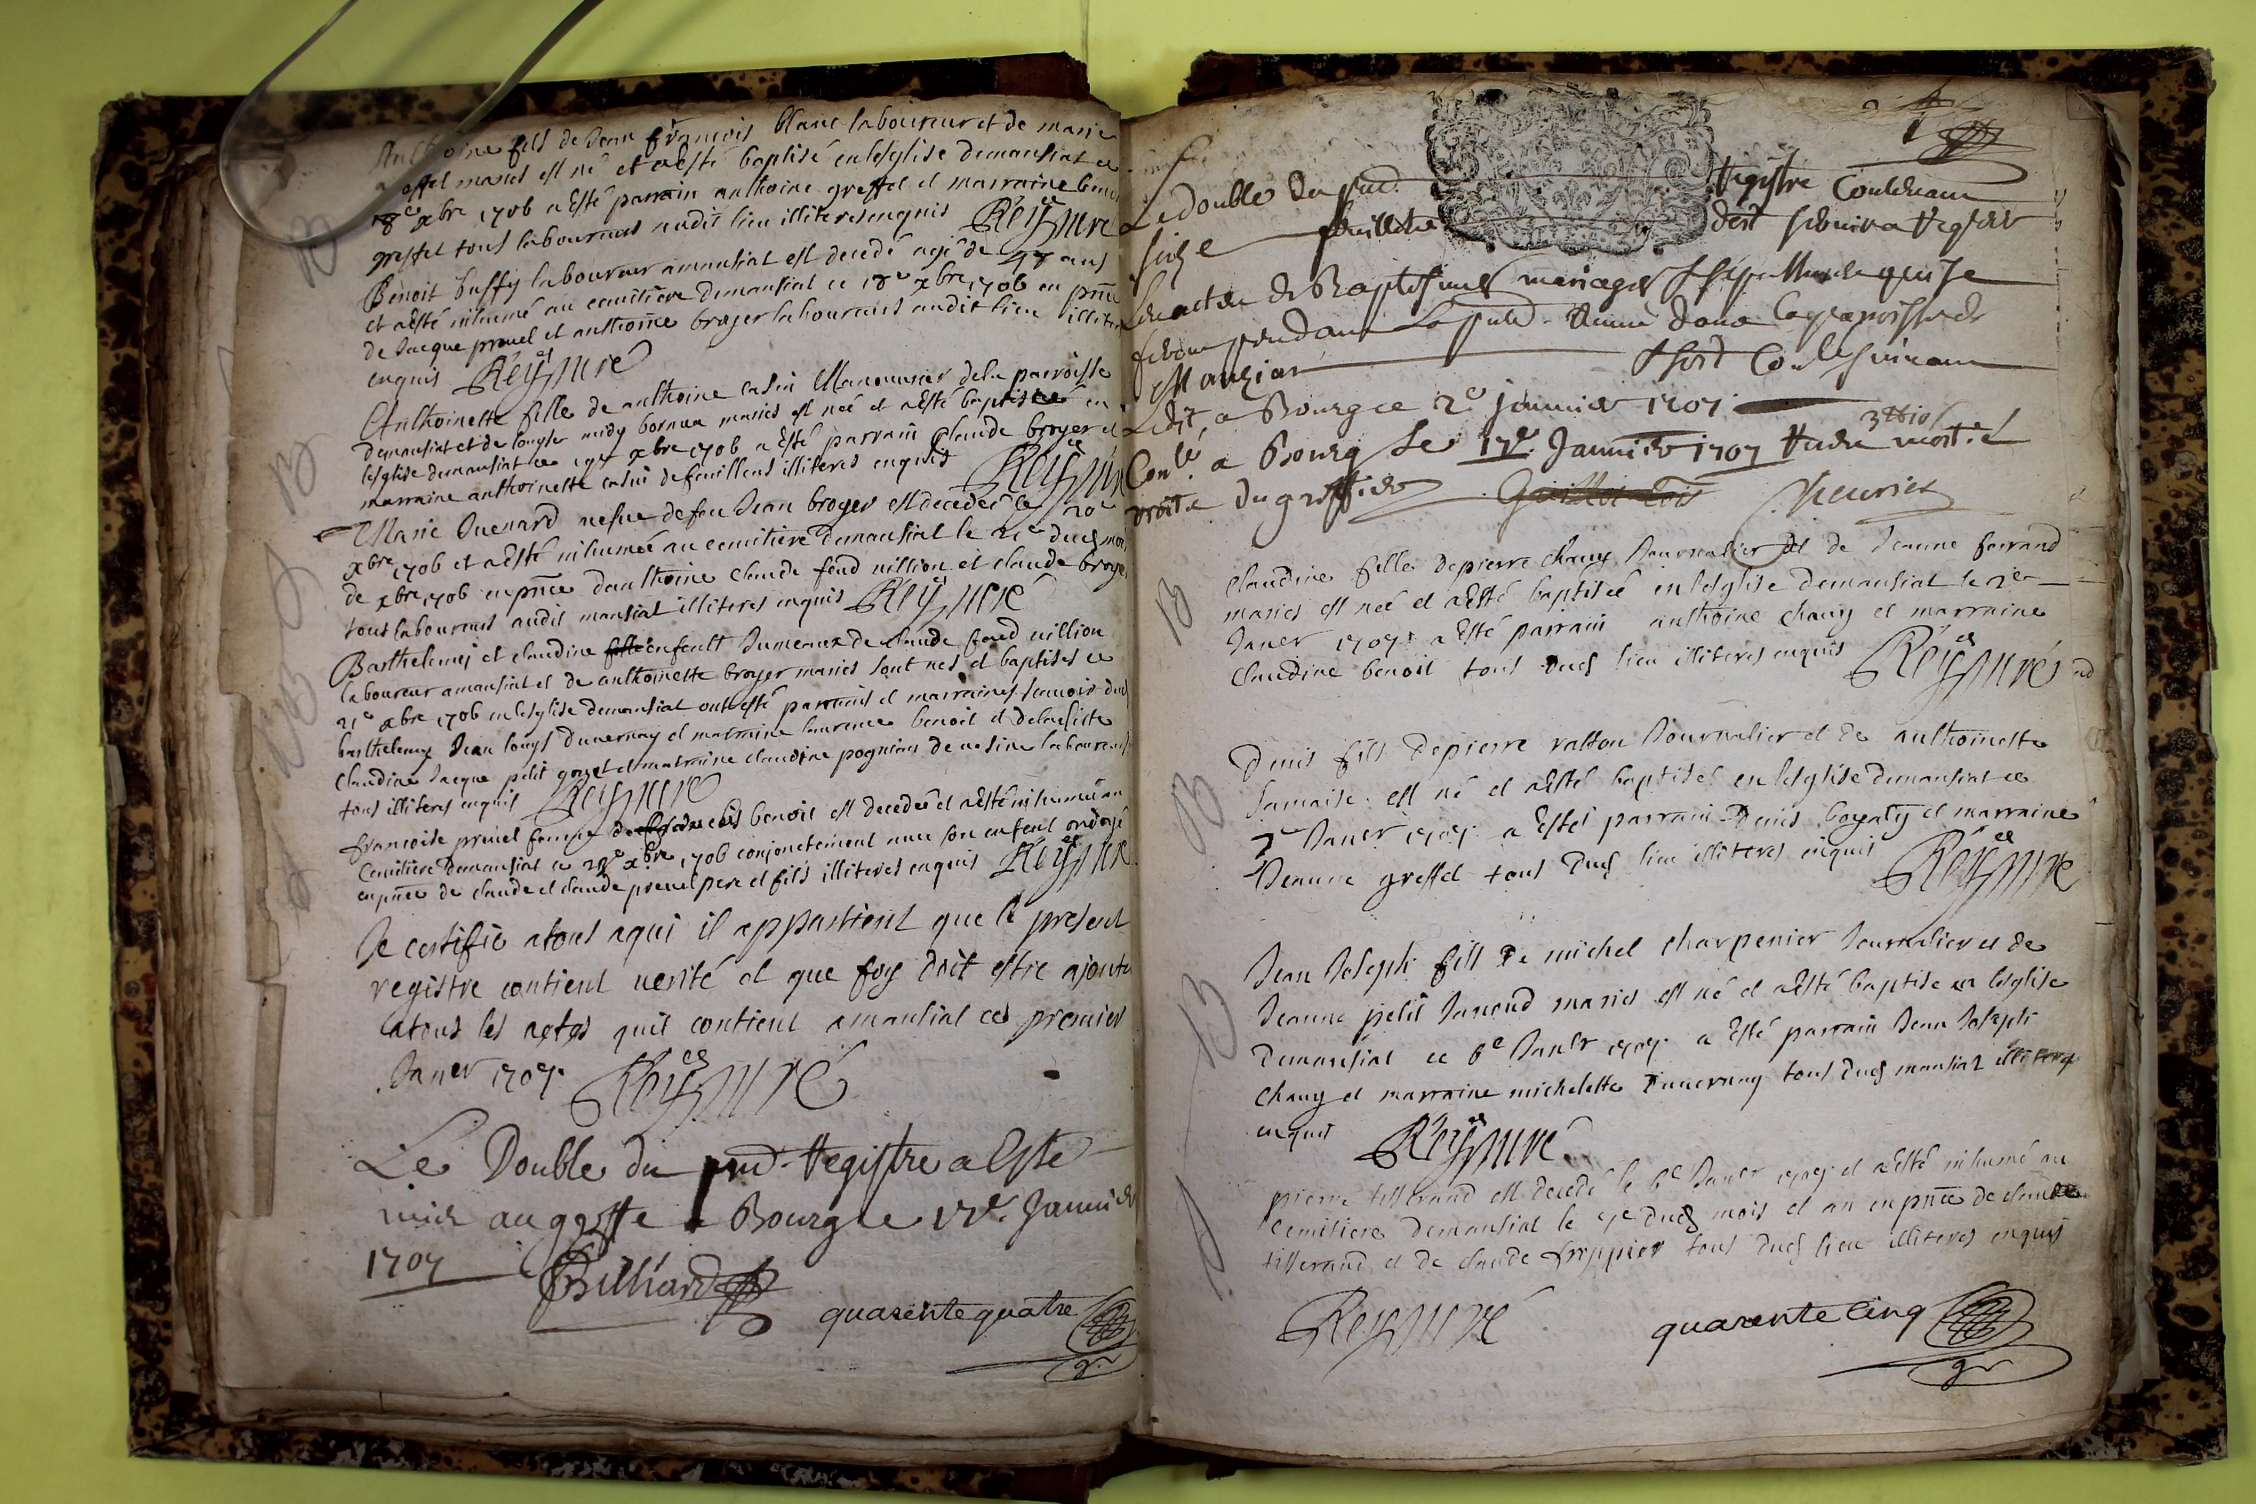 Anthoine fils de Jean françois blanc laboureur et de marie
greffet mariés est né et a esté baptisé en lesglise demansiat ce
18e xbre 1706 a esté parrain anthoine greffet et marraine
greffet tous laboureurs audit lieu illiteres enquis Rey curé
B
Benoit buffy laboureur amansiat est decedé agé de ans
et a esté inhumé au cemitiere demansiat ce 18e xbre 1706 en pnce
de Jacque pruel et anthoine broyer laboureurs audit lieu illiter
enquis Rey curé
Anthoinette fille de anthoine casin Manouurier dela parroisse
demansiat et de mariés est née et a esté baptisée en
lesglise demansiat ce xbre 1706 a esté parrain claude broyer et
marraine anthoinette casin defeuillens illiteres enquis Rey curé
B
Marie Duenard uefue defeu Jean broyer est decedée le 20e
xbre 1706 et a esté inhumée au cemitiere demansiat le 21e dud moi
de xbre 1706 en pnce danthoine claude feud uillion et claude broye
tous laboureurs audit mansiat illiteres enquis Rey curé
Barthelemy et claudine enfents Jumeaux de claude feud uillion
laboureur amansiat et de anthoinette broyer mariés sont nés et baptisés ce
21e xbre 1706 en lesglise demansiat ont esté parrains et marraines scauoir dud
barthelemy Jean louys Duuernay et marraine laurence benoit et deladite
claudine Jacque petit goyet et marraine claudine pognian de laboureurs
tous illiteres enquis Rey curé
francoise pruuel femme benoit est decedée et a esté inhumée au
cemitiere demansiat ce 28e xbre 1706 conjonctement auec son enfent ondoyé
en pnce de claude et claude pruuel pere et fils illiteres enquis Rey curé
Je certifie atous aqui il appartient que le present
registre contient uerité et que foy doit estre ajouté
atous les actes quil contient amansiat ce premier
Januer 1707. Rey curé
Le Double du pnt Registre a Este
mis au greffe a Bourg le 17e Januier
1707 Billiard
quarente quatre
Le double du pnt Registre Contenant
seize feuillets dont seruira Registr
Les actes de Baptesmes mariages & sepultures qui se
feront pendant La pnte Année dans la parroisse de
Manziat & sont
Ledit, a Bourg ce 2e Januier 1707.
Conle a Bourg Le 17e Januier 1707 moitié
droit du greffier
B
Claudine fille depierre chauy Journalier et de Jeanne ferrand
mariés est née et a esté baptisée en lesglise demansiat le 2e
Januer 1707. a esté parrain anthoine chauy et marraine
claudine benoit tous dud lieu illiteres enquis Rey curé
B
Denis fils depierre ratton Journalier et de anthoinette
Jamaise est né et a esté baptisé en lesglise demansiat ce
Januer 1707. a esté parrain Denis et marraine
Jeanne greffet tous dud lieu illiteres enquis Rey curé
B
Jean Joseph fils de michel charpenier Journalier et de
Jeanne petit Janend mariés est né et a esté baptisé en lesglise
demansiat ce 6e Januer 1707. a esté parrain Jean Joseph
chauy et marraine michelette Duuernay tous dud mansiat illiteres
enquis Rey curé
pierre tisserand est decedé le 6e Januer 1707 et a esté inhumé au
cemitiere demansiat le 7e dud mois et an en pnce de claude
tisserand et de claude tous dud lieu illiteres enquis
Rey curé
quarente cinq